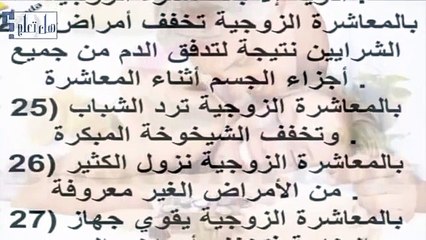 هل تعلم
بالمعاشرة الزوجية تخفف أمراض
الشرايين نتيجة لتدفق الدم من جميع
أجزاء الجسم أثناء المعاشرة .
25) بالمعاشرة الزوجية ترد الشباب
وتخفف الشيخوخة المبكرة .
26) بالمعاشرة الزوجية نزول الكثير
من الأمراض الغير معروفة .
27) بالمعاشرة الزوجية يقوي جهاز